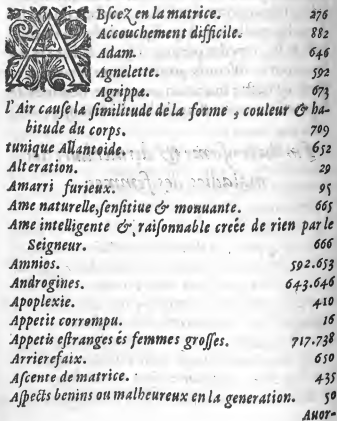 ABſceZ en la matrice. 276
Accouchement difficile. 882
Adam. 646
Agnelette. 592
Agrippa. 673
l'Air cauſe la ſimilitude de la forme , couleur & ha-
bitude du corps. 709
tunique Allantoide. 652
Alteration. 29
Amarri furieux. 95
Ame naturelle, ſenſitiue & mouuante. 665
Ame intelligente & raiſonnable creée de rien par le
Seigneur. 666
Amnios. 592.653
Androgines. 643.646
Apoplexie. 410
Appetit corrompu. 16
Appetis eſtranges és femmes groſſes. 717.738
Arrierefaix. 650
Aſcente de matrice. 435
Aſpects benins ou malheureux en la generation. 50
Auor-